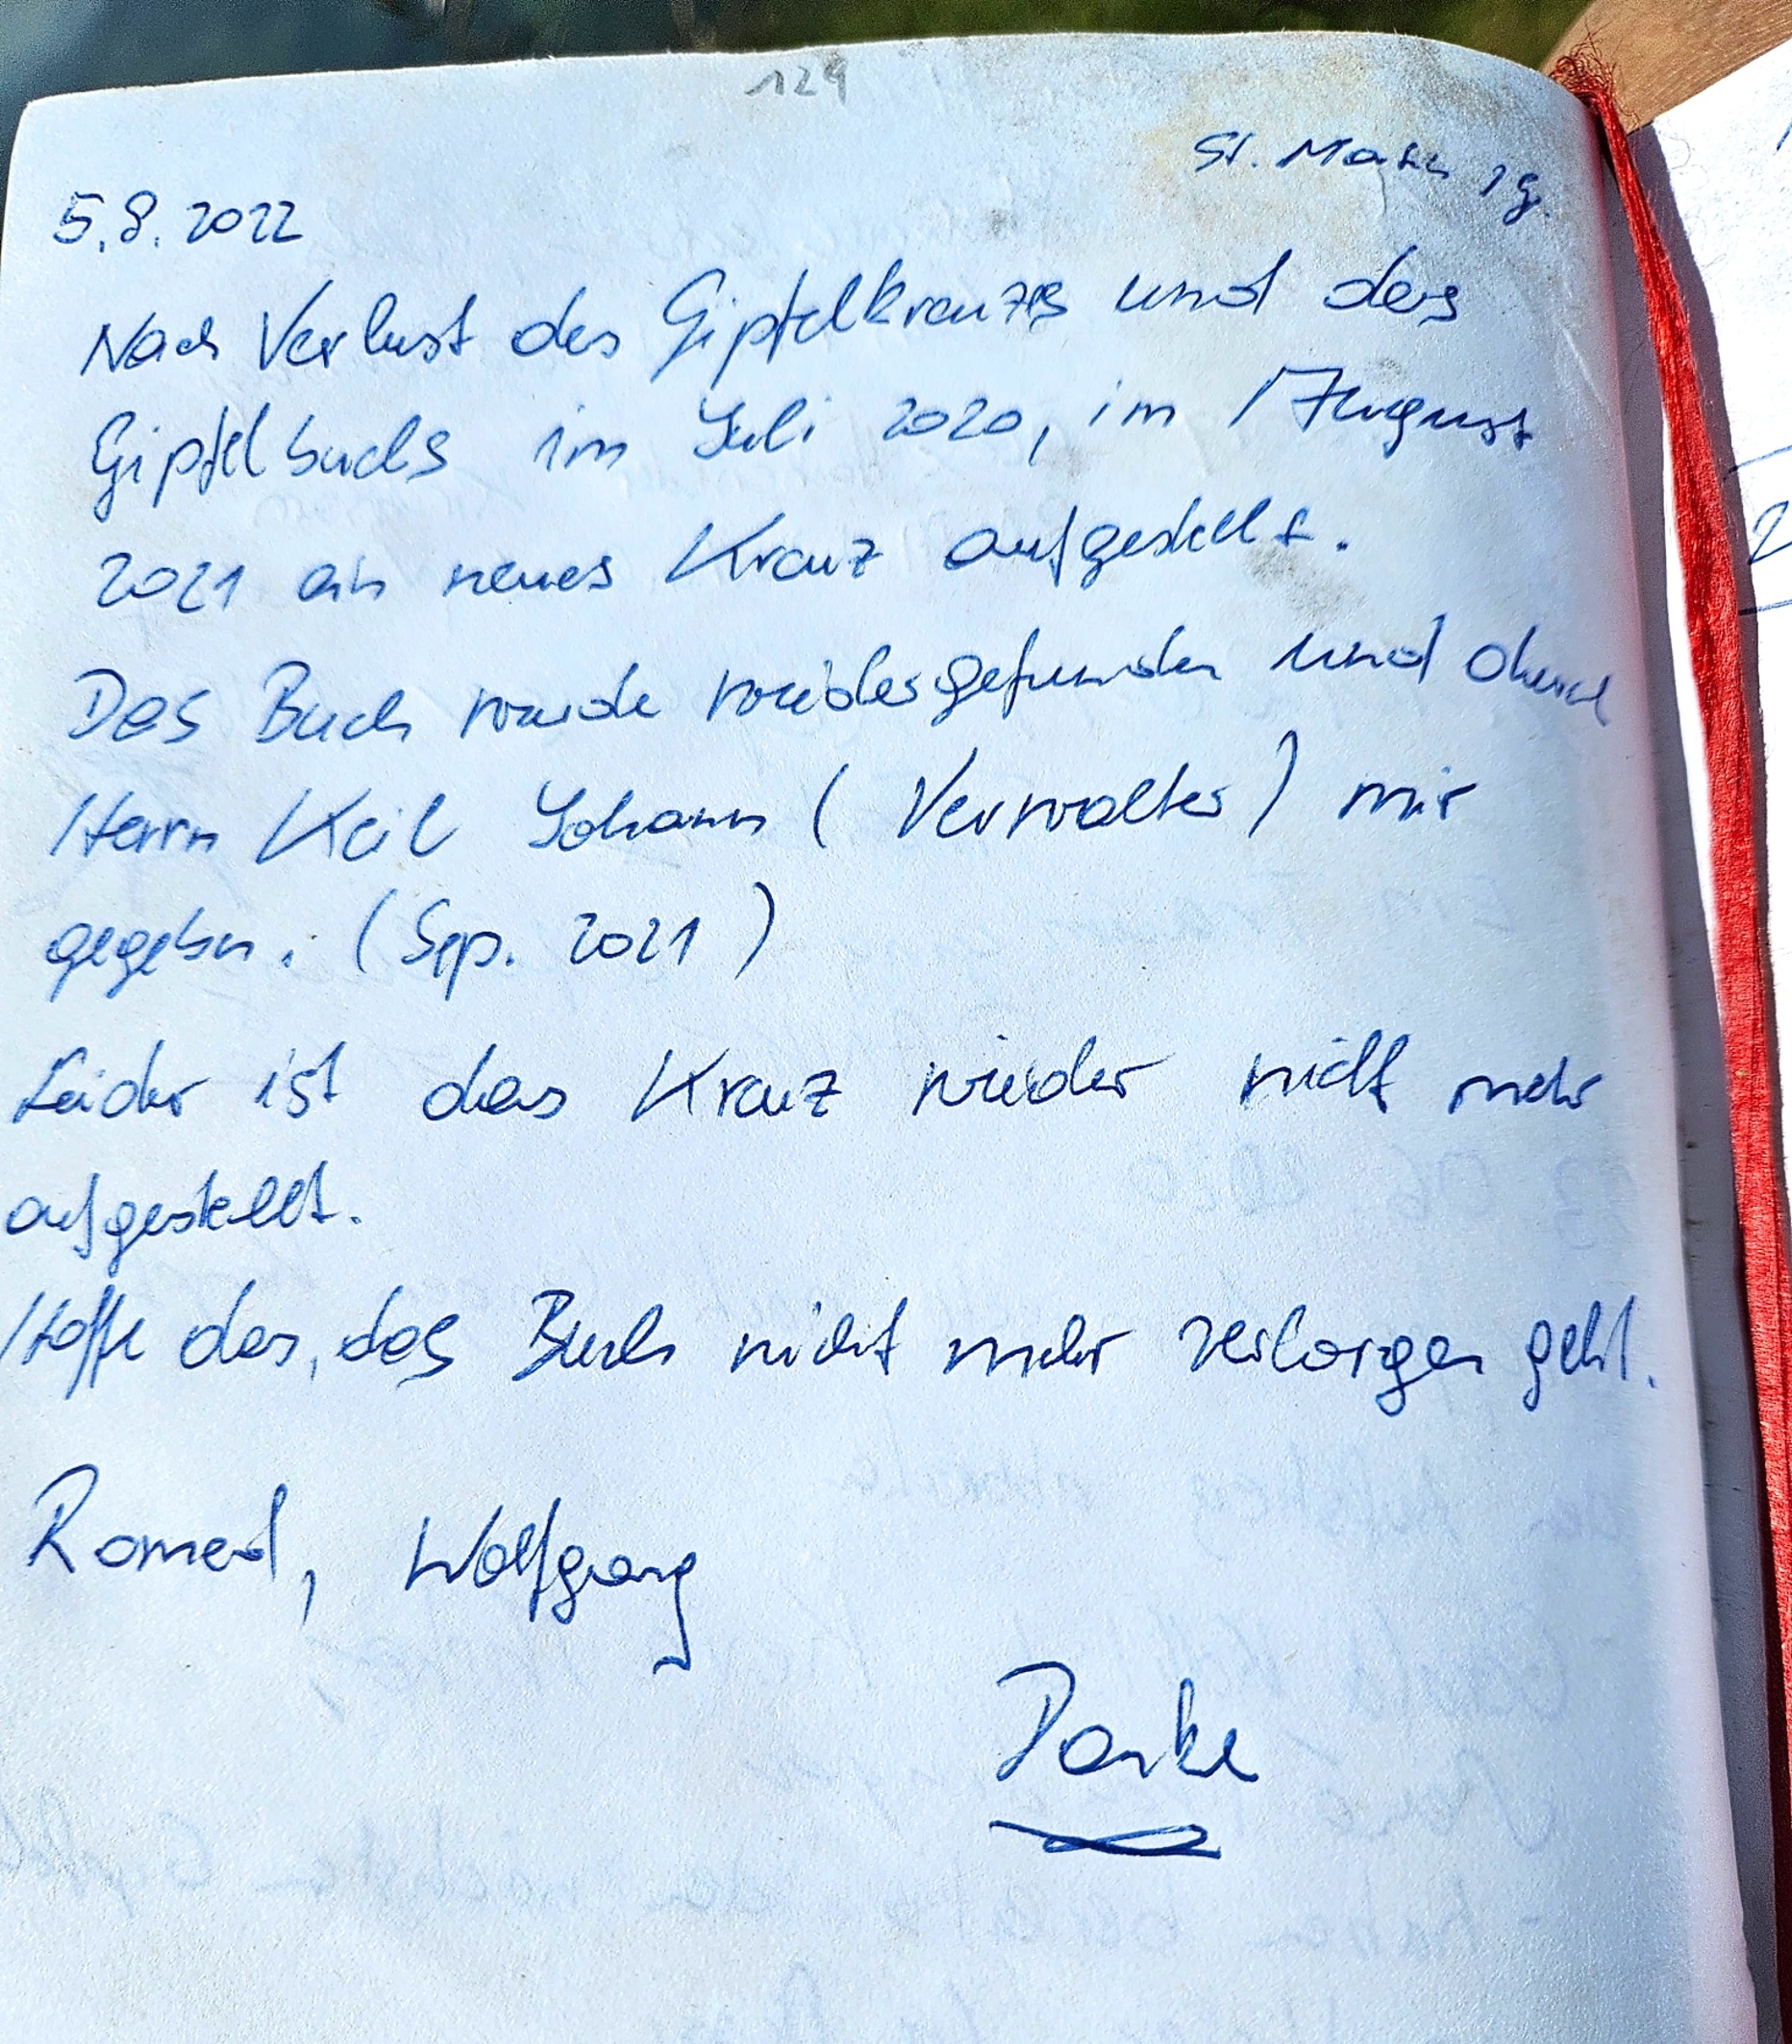 129
St. Mar
5.8.2022
Nach Verlust des Gipfelkreuzes und des
Gipfelbuchs im Juli 2020, im August
2021 ein neues Kreuz aufgestellt.
Das Buch wurde wiedergefunden und durch
Herrn Keil Johann (Verwalter) mir
gegeben. (Sep. 2021)
Leider ist das Kreuz wieder nicht mehr
aufgestellt.
Hoffe das, das Buch nicht mehr verloren geht.
Romed, Wolfgang
Danke